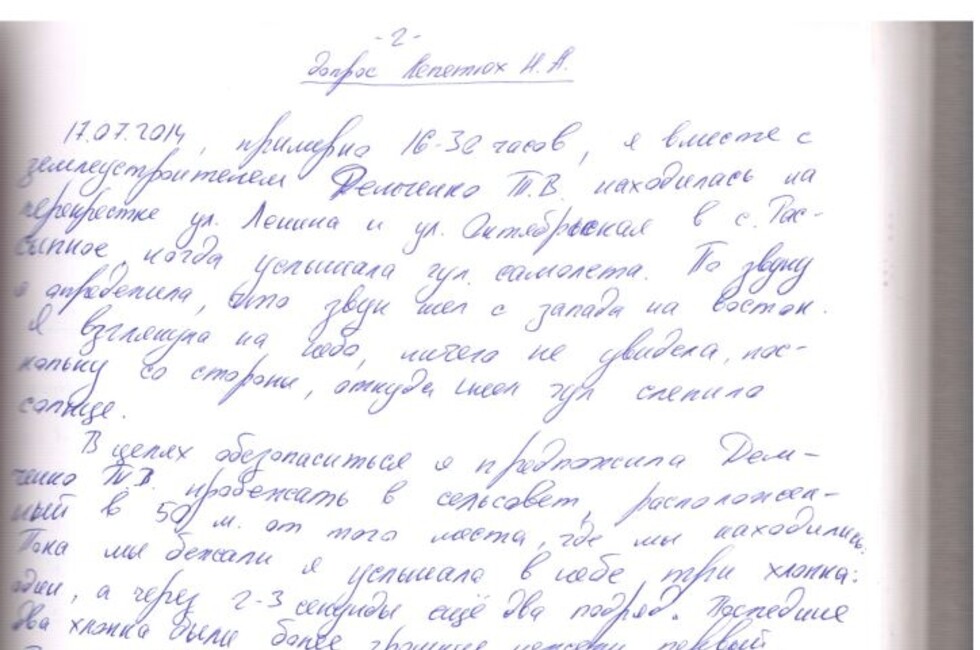 -2-
допрос Лепетюх Н.А.
17.07.2014, примерно 16-30 часов, я вместе с
землеустроителем Демченко Т.В. находилась на
перекрестке ул. Ленина и ул. Октябрьская в с. Рас-
сыпное, когда услышала гул самолета. По звуку
я определила, что звук шел с запада на восток.
Я взглянула на небо, ничего не увидела, пос-
кольку со стороны, откуда шел гул слепило
солнце.
В целях обезопаситься я предложила Дем-
ченко Т.В. пробежать в сельсовет, расположен-
ный в 50 м. от того места, где мы находились.
Пока мы бежали я услышала в небе три хлопка:
один, а через 2-3 секунды ещё два подряд. Последние
два хлопка были более громкие нежели первый